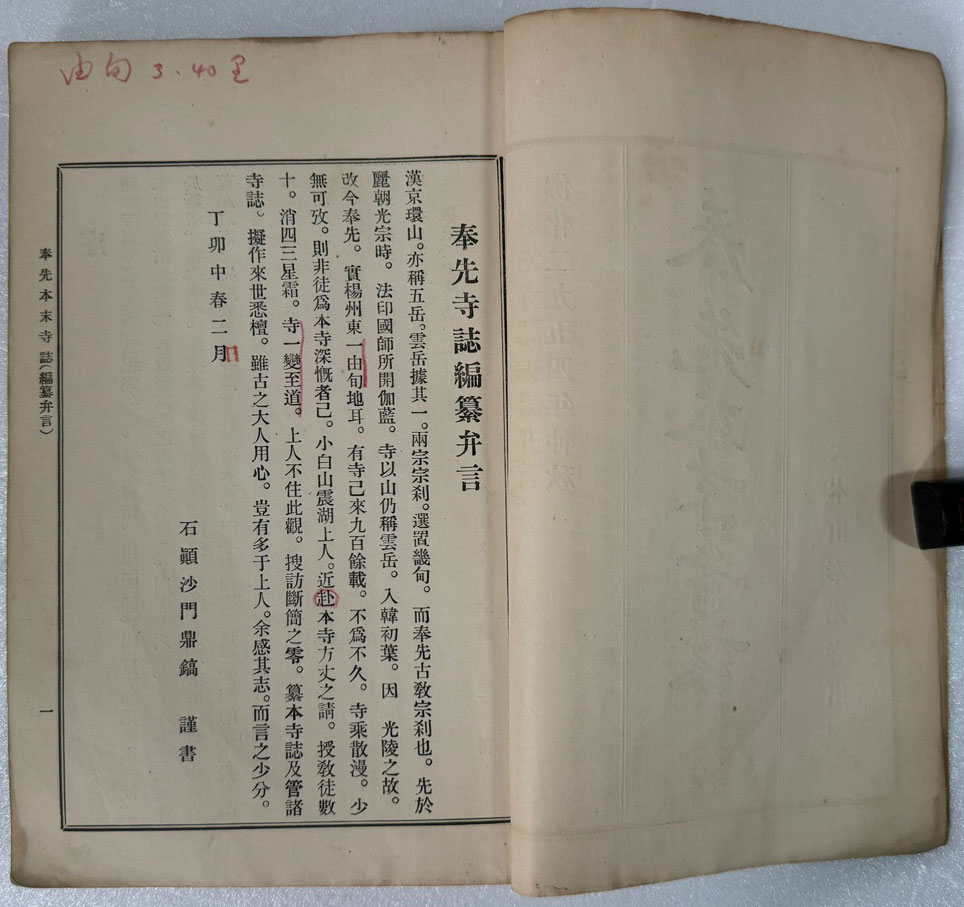 由旬 3.40里
奉先寺誌編纂弁言
漢京環山。亦稱五岳。雲岳據其一。兩宗宗刹。選置畿甸。而奉先古教宗刹也。先於
麗朝光宗時。法印國師所開伽藍。寺以山仍稱雲岳。入韓初葉。因 光陵之故。
改今奉先。實楊州東一由旬地耳。有寺己來九百餘載。不爲不久。寺乘散漫。少
無可攷。則非徒爲本寺深慨者己。小白山震湖上人。近赴本寺方丈之請。授教徒數
十。消四三星霜。寺一變至道。上人不住此觀。搜訪斷簡之零。纂本寺誌及管諸
寺誌。擬作來世悉檀。雖古之大人用心。豈有多于上人。余感其志。而言之少分。
丁卯中春二月
石顚沙門鼎鎬 謹書
奉先本末寺誌(編纂弁言)
一